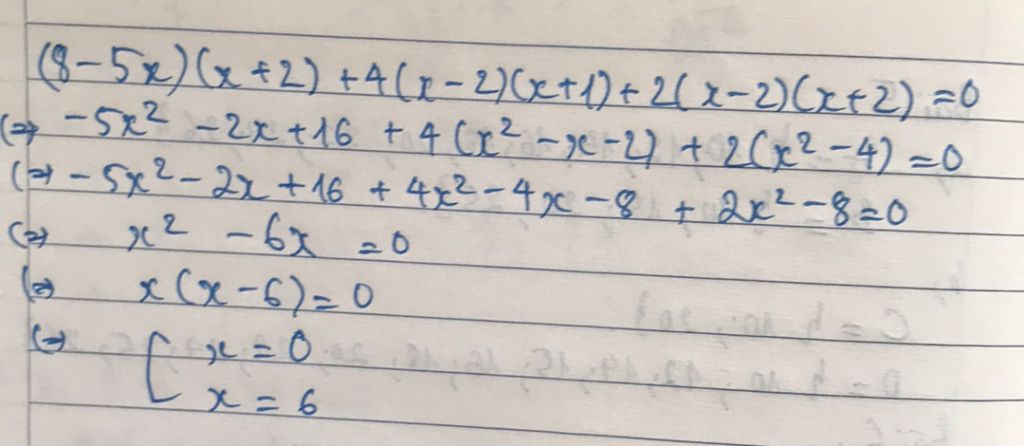 (8-5x)(x+2)+4(x-2)(x+1)+2(x-2)(x+2)=0
(=) -5x²-2x+16+4(x²-x-2)+2(x²-4)=0
(=) -5x²-2x+16+4x²-4x-8+2x²-8=0
(=) x²-6x=0
(=) x(x-6)=0
(=) [ x=0
x=6